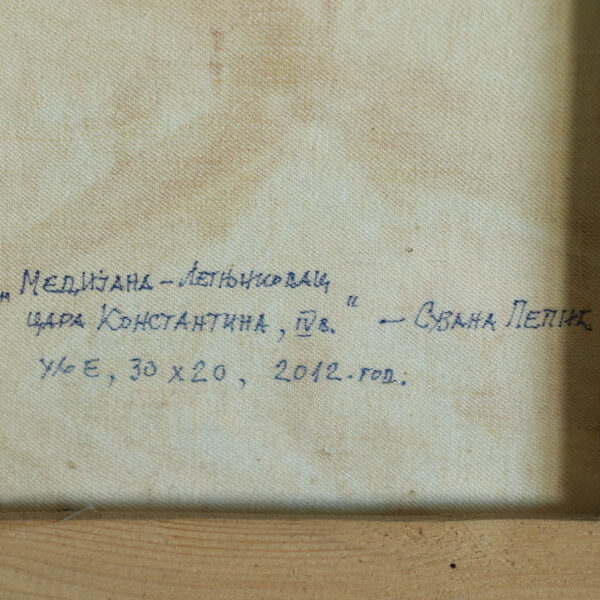 „Медијана – Летњиковац
цара Константина, IV в.“ – Сузана Пешић
У/о Е, 30 x 20, 2012. год.